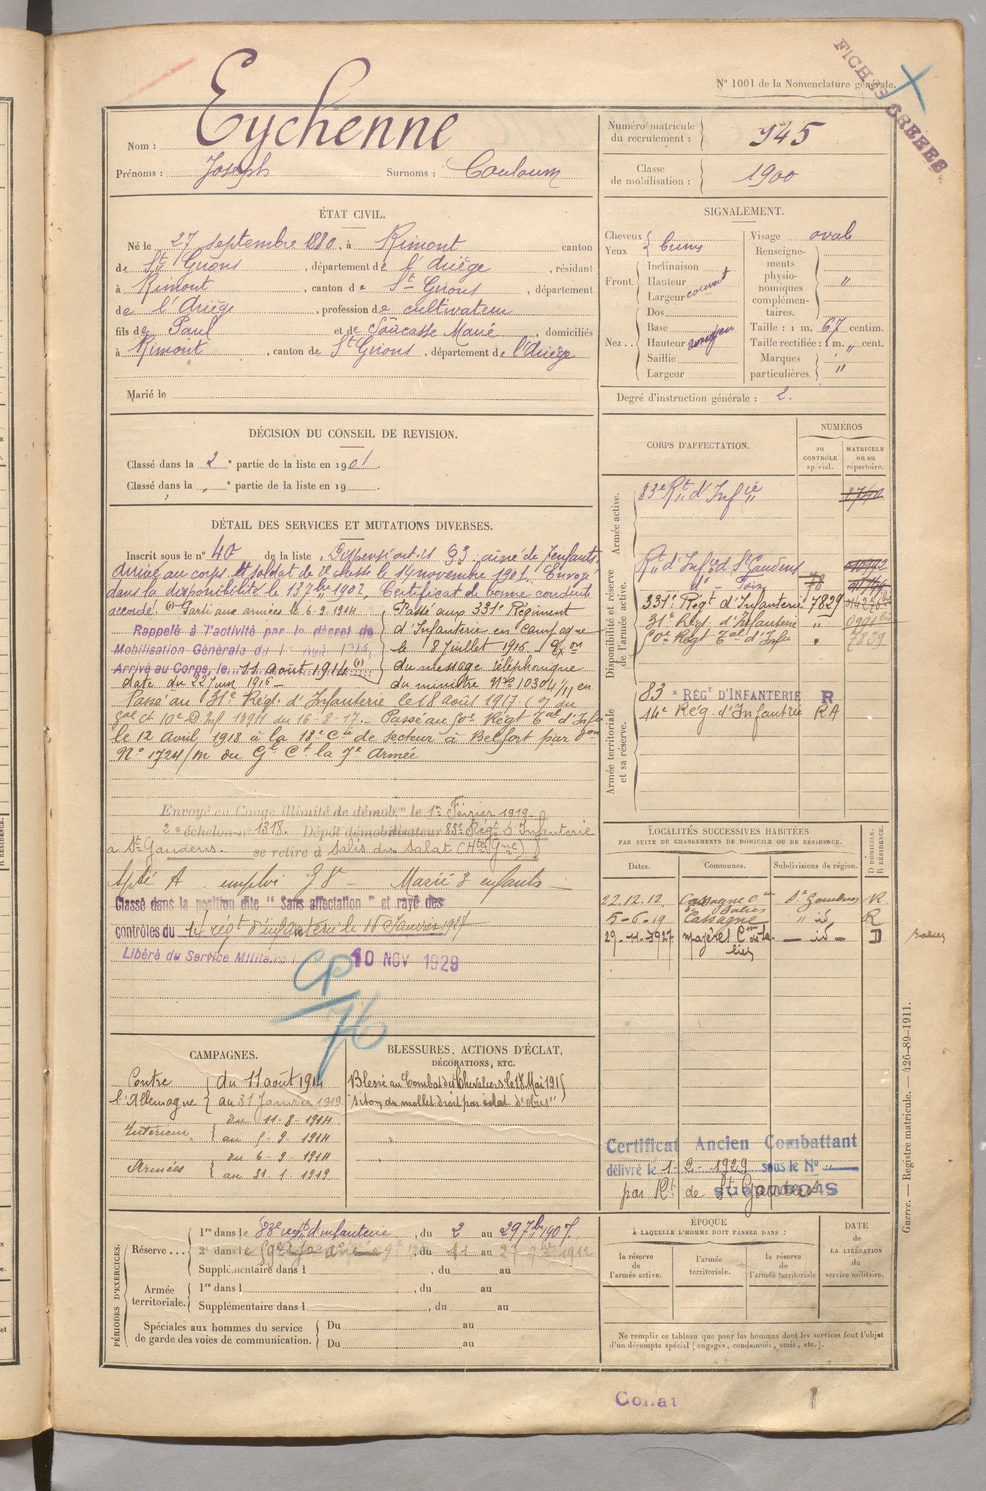 FICHES CRÉÉES
N° 1001 de la Nomenclature générale.
Nom : Eychenne
Prénoms : Joseph Surnoms : Couloum
Numéro matricule du recrutement : 945
Classe de mobilisation : 1900
ÉTAT CIVIL.
Né le 27 septembre 1880, à Rimont canton
de St Girons, département de l'Ariège, résidant
à Rimont, canton de St Girons, département
de l'Ariège, profession de cultivateur
fils de Paul et de Soucasse Marie, domiciliés
à Rimont, canton de St Girons, département de l'Ariège
Marié le
SIGNALEMENT.
Cheveux
Yeux
bruns
Front.
Inclinaison
Hauteur
Largeur courant
Nez..
Dos
Base
Hauteur
Saillie
Largeur
Visage ovale
Renseignements physionomiques complémentaires. "
Taille : 1 m. 67 centim.
Taille rectifiée : 1 m. " cent.
Marques particulières. "
Degré d'instruction générale : 2.
DÉCISION DU CONSEIL DE REVISION.
Classé dans la 2e partie de la liste en 1901
Classé dans la " e partie de la liste en 19
DÉTAIL DES SERVICES ET MUTATIONS DIVERSES.
Inscrit sous le n° 40 de la liste. Dispensé art. 21 § 3 aîné de 7 enfants
Arrivé au corps et soldat de 2e classe le 14 novembre 1901. Envoyé
dans la disponibilité le 1902. Certificat de bonne conduite
accordé. (1) Parti aux armées le 6-9-1914
Rappelé à l'activité par le décret de
Mobilisation Générale du 1er Août 1914,
Arrivé au Corps, le 11 août 1914 (1)
Passé au 331e Régiment
d'Infanterie en campagne
le 8 Juillet 1916
du message téléphonique
du ministre N° 10304 1/11 en
date du 22 juin 1916
Passé au 31e Régt. d'Infanterie le 18 août 1917
du 16-8-17. Passé au Régt Tal d'Infie
le 12 Avril 1918 à la 18e Cie de secteur à Belfort par don
N° 1724/m du Gl Ct la 7e Armée
Envoyé en Congé illimité de démobon le 1er Février 1919
2e échelon n° 1318. Dépôt démobilisateur 83e Régt d'Infanterie
à St Gaudens. se retire à Salis du Salat (Hte Gne)
Marié 3 enfants
Classé dans la position dite "Sans affectation" et rayé des
contrôles du 14e régt d'infanterie le 16 Janvier 1927
Libéré du Service Militaire 10 NOV 1929
CP
76
CORPS D'AFFECTATION.
NUMÉROS
au CONTRÔLE spécial.
MATRICULE ou au répertoire.
Armée active.
83e Rt d'Infie
Disponibilité et réserve de l'armée active.
Rt d'Infie de St Gaudens
d° Foix
331e Régt d'Infanterie 7829
31e Régt d'Infanterie "
Régt Tal d'Infie " 7829
Armée territoriale et sa réserve.
83e RÉGt D'INFANTERIE R
14e Rég d'Infantrie RA
LOCALITÉS SUCCESSIVES HABITÉES
PAR SUITE DE CHANGEMENTS DE DOMICILE OU DE RÉSIDENCE.
Dates. Communes. Subdivisions de région. D DOMICILE. R RÉSIDENCE.
22.12.12 Cassagne con Salies St Gaudens R
5-6-19 Cassagne " id R
29-11-1927 Mazères Con de Salies — id — D
Salies
CAMPAGNES.
Contre l'Allemagne
du 11 août 1914
au 31 Janvier 1919
Intérieur
du 11-8-1914
au 5-9-1914
Armées
du 6-9-1914
au 31-1-1919
BLESSURES, ACTIONS D'ÉCLAT,
DÉCORATIONS, ETC.
Blessé au combat des Chevaliers le 18 Mai 1915
"séton du mollet droit par éclat d'obus"
Certificat Ancien Combattant
délivré le 1-2-1929 sous le N°
par Rt de St Gaudens
PÉRIODES D'EXERCICES.
Réserve...
1re dans le 83e régt d'infanterie, du 2 au 29 7bre 1907.
2e dans le du 11 au 27 1911
Supplémentaire dans l , du au
Armée territoriale.
1re dans l , du au
Supplémentaire dans l , du au
Spéciales aux hommes du service de garde des voies de communication.
Du au
Du au
ÉPOQUE
À LAQUELLE L'HOMME DOIT PASSER DANS :
la réserve de l'armée active.
l'armée territoriale.
la réserve de l'armée territoriale
DATE de LA LIBÉRATION du service militaire.
Ne remplir ce tableau que pour les hommes dont les services font l'objet
d'un décompte spécial (engagés, condamnés, omis, etc.).
Guerre. — Registre matricule. — 426-89-1911.